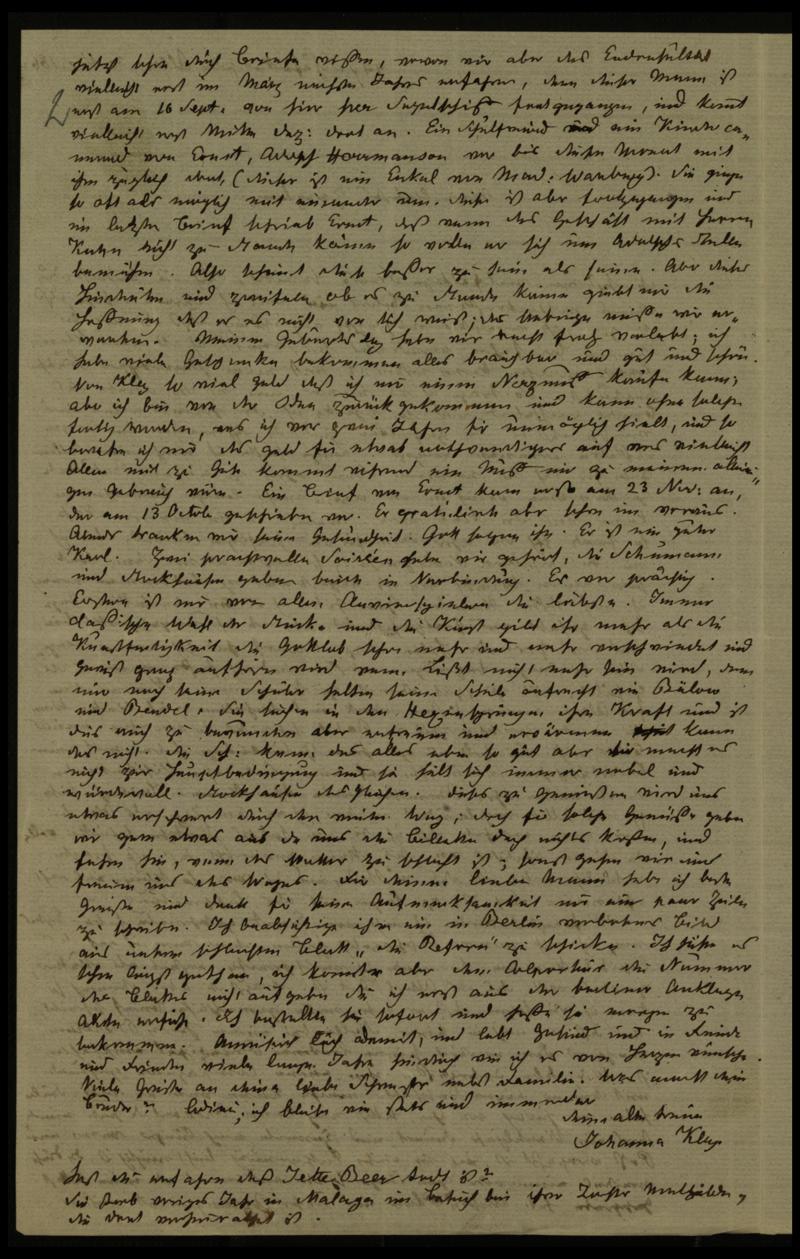 jetzt schon durch Briefe wissen, wovon wir aber das Endresultat
vielleicht erst im März nächsten Jahres erfahren, denn dieser Mann ist
erst am 16 Sept. von hier per Segelschiff fortgegangen, und kommt
vielleicht erst Mitte Dez: dort an. Ein Schulfreund und ein Kinder ca-
merad von Ernst, Adolph Horrmanson war bis diesen Monat mit
ihm zugleich dort, (dieser ist ein Enkel von Mad: Warburg). Sie gingen
so oft als möglich mit einander um. Dieser ist aber fortgegangen und
im letzten Brief schrieb Ernst, daß wenn das Geschäft mit Herrn
Kuhn nicht zu Stande käme so wolle er sich um Adolphs Stelle
bemühen. Also scheint diese besser zu sein als seine. Aber dieses
und zweifeln ob es zu Stande käme giebt mir die
Hoffnung daß er es nicht weiß; das Uebrige müssen wir er-
warten. Meinen Geburtstag haben wir recht froh verlebt; ich
habe viele Geschenke bekommen alles brauchbar und gut und schön.
Von Kley so viel Geld daß ich mir einen Nerzmuff kaufen kann;
aber ich bin von der Idee zurückgekommen und kann ohne solchen
fertig werden, was ich vor zwei Jahren für unmöglich hielt, und so
bewahre ich mir das Geld für etwas nothwendigeres auf was vielleicht
Allen mit zu Gute kommt während ein Muff nur zu meinem allein-
gen Gebrauch wäre. Ein Brief von Ernst kam erst am 23 Nov: an,
der am 13 Octbr geschrieben war. Er gratulirte aber schon im voraus.
Abends tranken wir seine Gesundheit. Gott segne ihn. Er ist ein guter
Kerl. Zwei prachtvolle Soiréen haben wir gehört, die Schumann
und Stockhausen gaben beide in Verbindung. Es war prächtig.
Erstere ist mir von allen Clavierspielern die liebste. Immer
classische Wahl der Stücke und die Kunst gilt ihr mehr als die
Kunstfertigkeit die Gottlob schon mehr und mehr verschwindet und
gewiß ganz aufhören wird wenn Lißt nicht mehr sein wird, denn
nur noch seine Schüler halten seine Schule aufrecht wie Bülow
und Bendel. Sie suchen in den Hexensprüngen ihre Kraft und ist
dies auch zu bewundern aber erfreuen und erwärmen kann
das nicht. Die Sch: kann das alles eben so gut aber sie macht es
nicht zur Hauptbedingung und so hält sich immer nobel und
würdevoll. Stockhausen desgleichen. Dieses zu genießen wird uns
etwas erschwert durch den weiten Weg; doch für solche Genüsse geben
wir gern etwas aus da uns die Billette doch nichts kosten, und
fahren hin, wenn das Wetter zu schlecht ist; sonst gehen wir und
freuen uns des Weges. Für Deinen lieben Mann habe ich beste
Grüße und Dank für seine Aufmerksamkeit mir ein paar Zeilen
zu schreiben. Ich beabsichtige ihm ein in Berlin verbotenes Bild
aus unserm Blatt „die Reform" zu schicken. Ich hätte es
schon längst gethan, ich konnte aber dem Colporteur die Nummer
des Blattes nicht aufgeben die ich erst aus der berliner Anklage
Akte erfuhr. Ich bestellte sie sofort und hoffe sie morgen zu
bekommen. Amüsirt Euch damit, und lebt gesund und in Freude
und Frieden viele lange Jahre hindurch wie ich es von Herzen wünsche.
Viele Grüße an Deine liebe Schwester nebst Familie. Was macht Dein
Bruder? Adieu, ich bleibe wie stets und immer
Deine alte treue
Johanna Kley
Hast Du erfahren daß Jette Beer todt ist?
Sie starb voriges Jahr in Malaga im Besuch bei ihrer Tochter Mathilde,
die dort verheirathet ist.